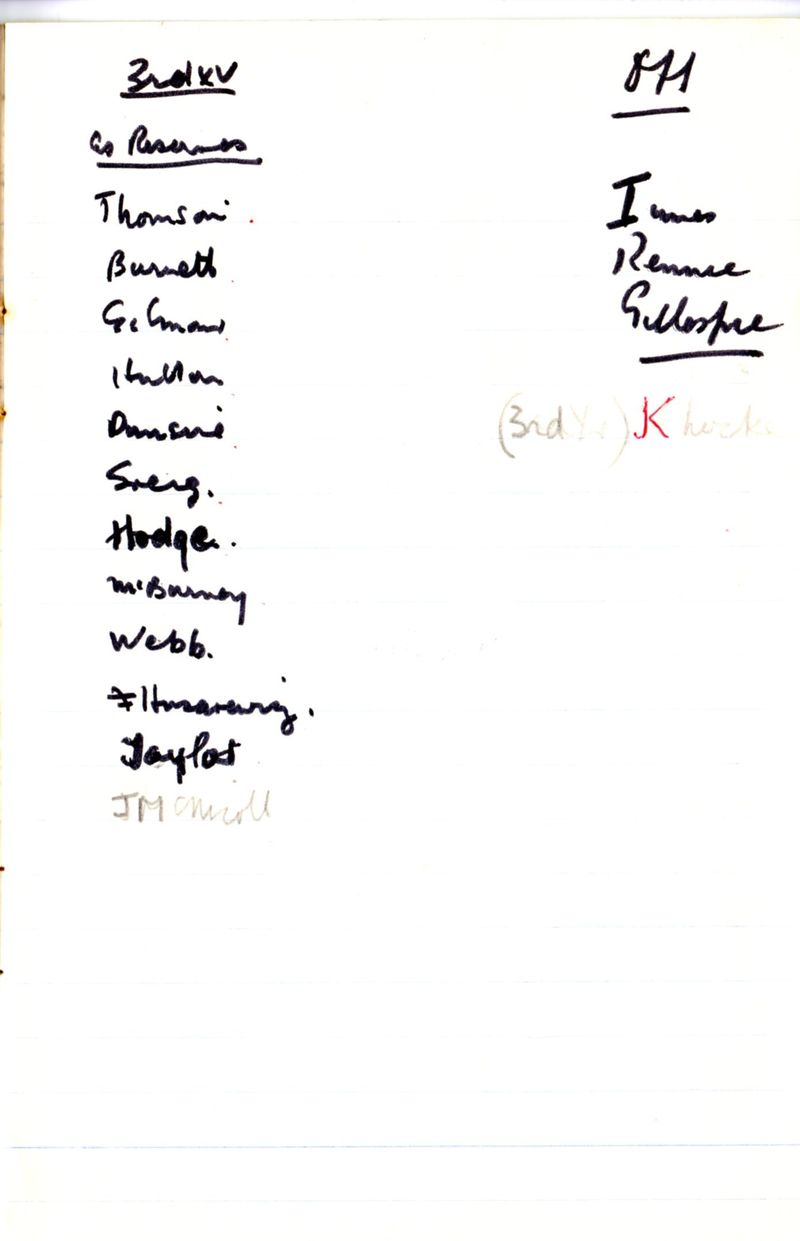 3rd XV
as Reserves
Thomson
Burnett
Gilmour
Hutton
Duncan
Greig.
Hodge.
McBurney
Webb.
Taylor
J McNicoll
Innes
Rennie
Gillespie
(3rd Yr) K